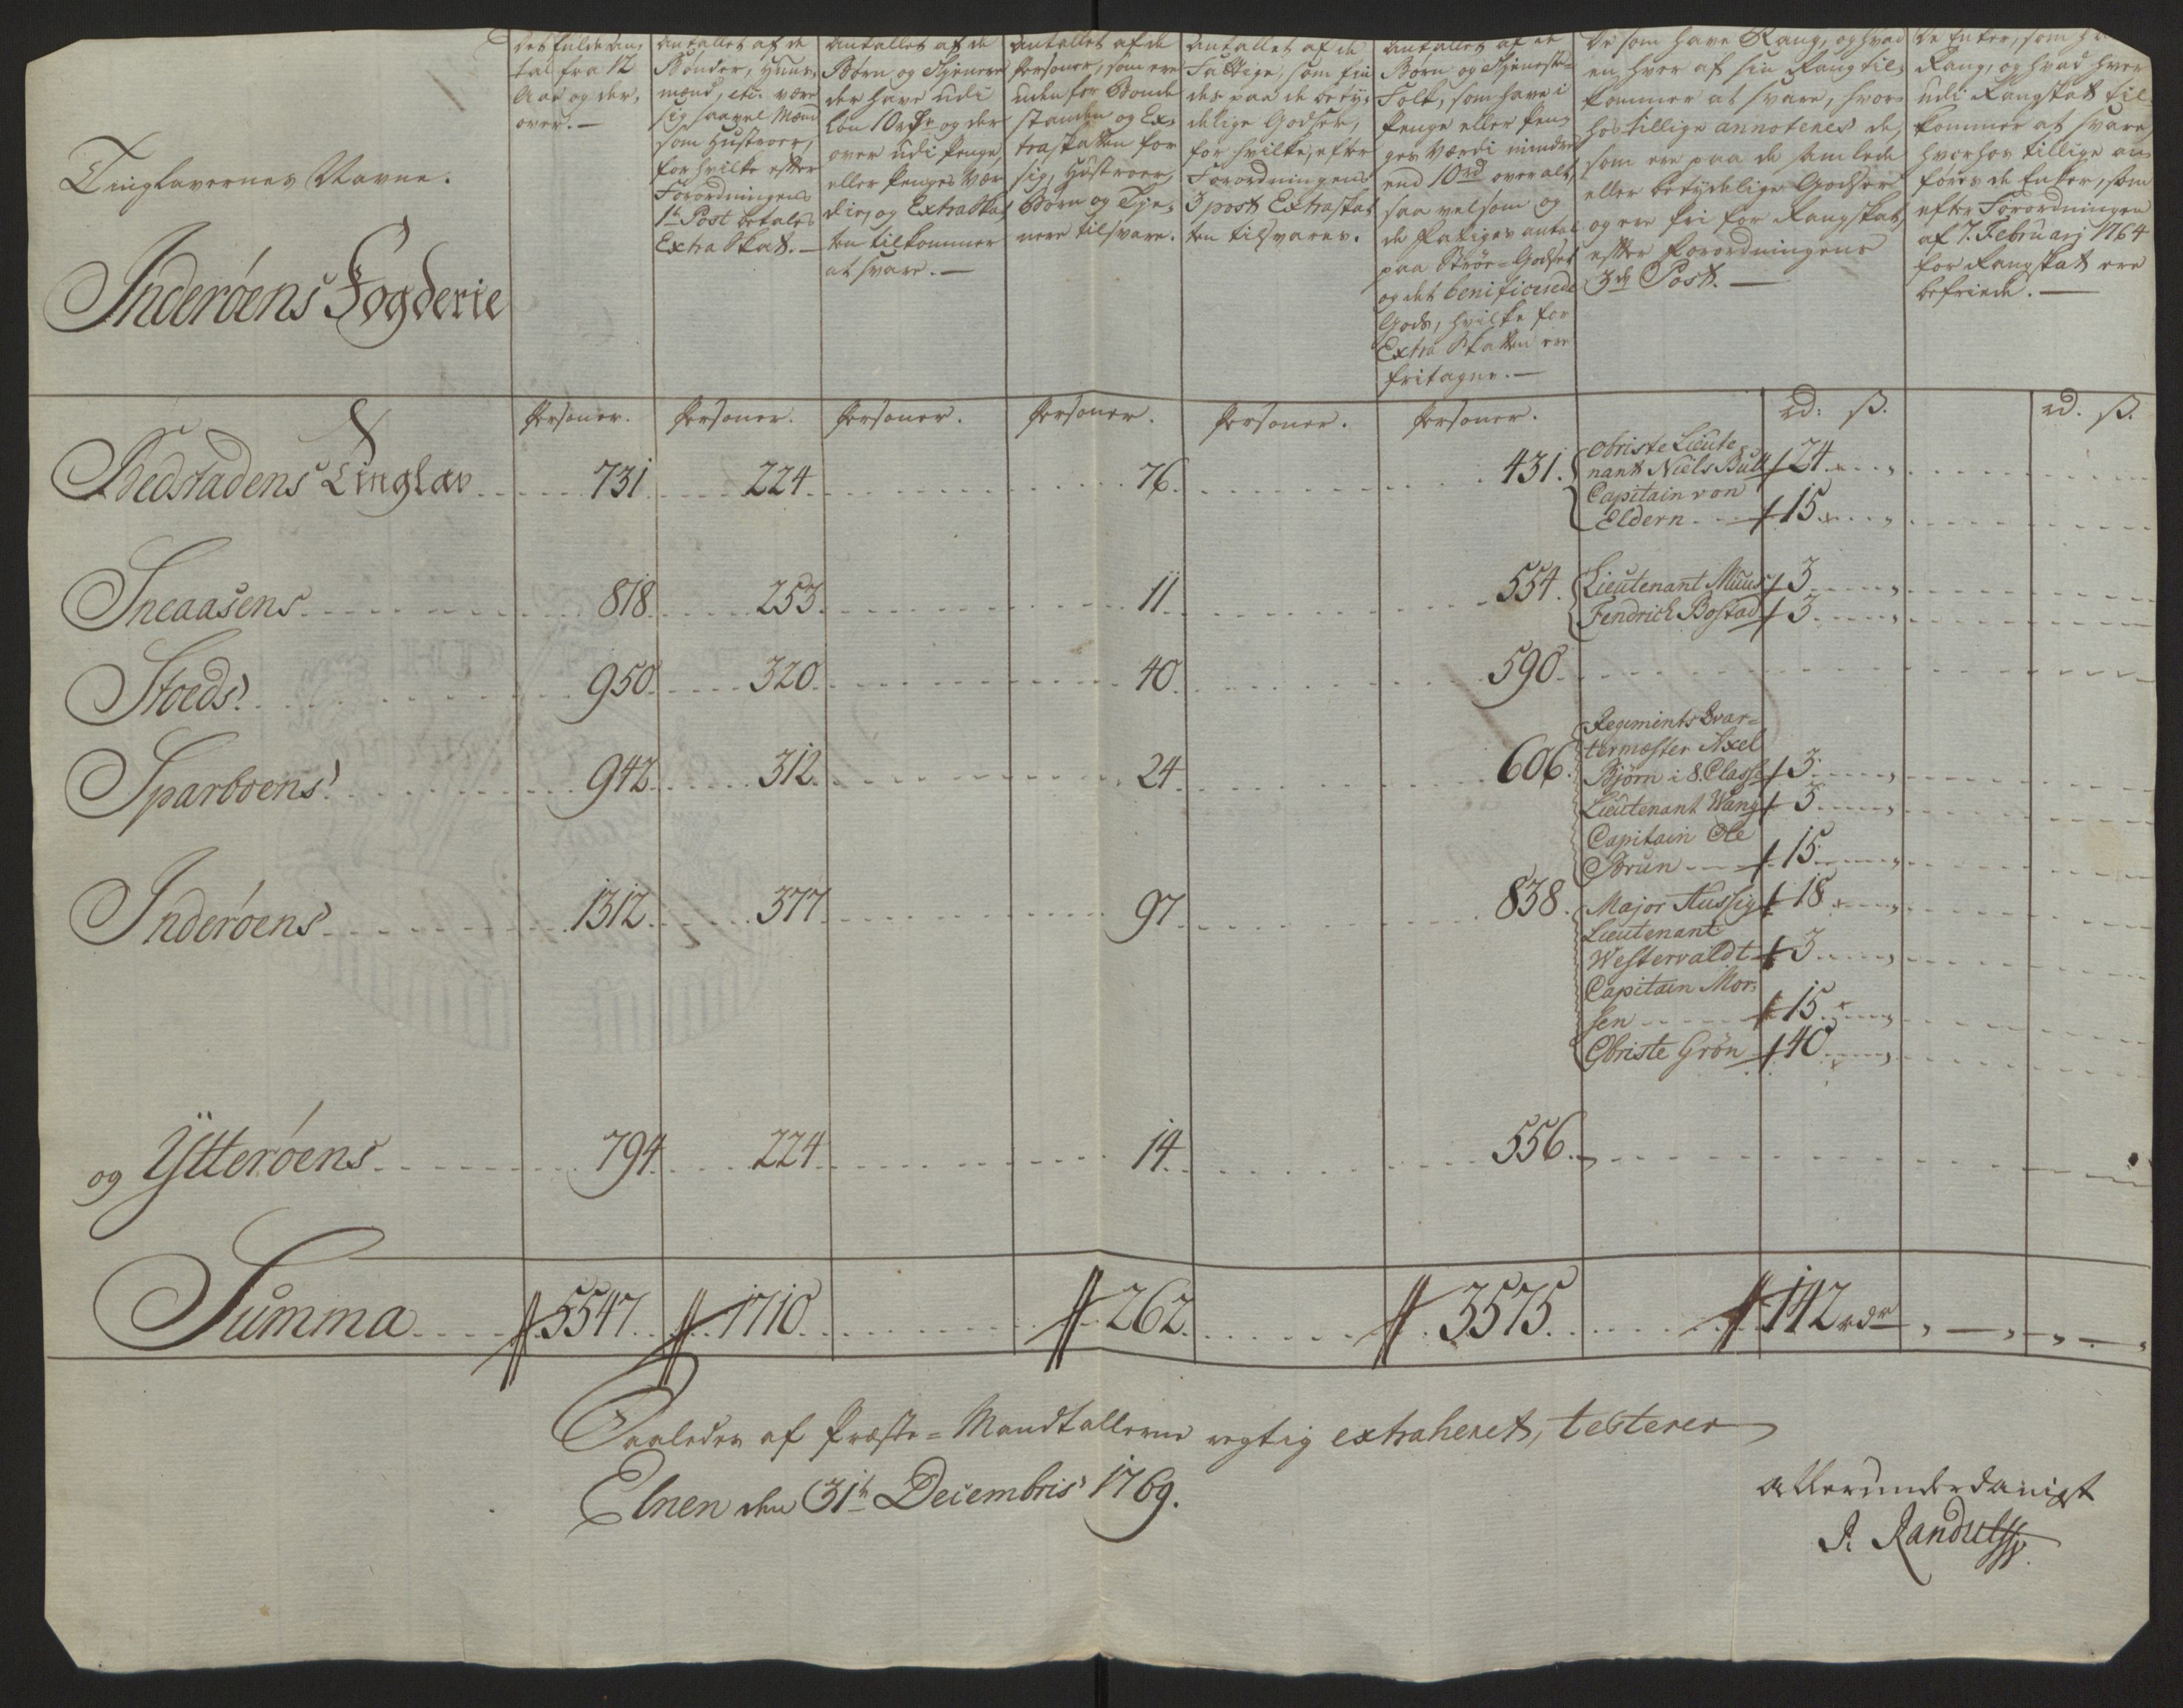 Tinglavernes Navne.
Inderöens Fogderie
Det fulde An-
tal fra 12
Aar og der-
over. —
Antallet af de
Bönder, Huus-
mænd, etc. være
sig saavel Mænd
som Hustroer,
for hvilke efter
Forordningens
1te Post betales
Extra Skat. —
Antallet af de
Börn og Tienere
der have udi
Lön 10 rdr og der
over udi Penge
eller Penges Vær
die, og Extra Skat
ten tilkommer
at svare. —
Antallet af de
Personer, som ere
uden for Bonde
standen og Ex-
traskatten for
sig, Hustroer,
Börn og Tje-
nere tilsvare.
Antallet af de
Fattige, som fin
des paa de betÿ-
delige Godser,
for hvilke, efter
Forordningens
3 post Extraskat
ten tilsvares.
Antallet af de
Börn og Tjeneste-
Folk, som have i
Penge eller Pen-
ges Værdi mindre
end 10 rd overalt,
saa velsom og
de Fatiges antal
paa Ströe-Godset
og det benificerede
Gods, hvilke for
Extra Skatten ere
fritagne. —
De som have Rang, og hvad
en hver af sin Rang til-
kommer at svare, hvor-
hos tillige annoteres de,
som ere paa de samlede
eller betydelige Godser
og ere fri for Rangskat,
efter Forordningens
3de Post. —
De Enker, som
Rang, og hvad hver
udi Rangskat til-
kommer at svare,
hvorhos tillige an-
föres de Enker, som
efter Forordningen
af 7. Februarj 1764
for Rangskat ere
befriede. —
Personer. Personer. Personer. Personer. Personer. Personer. rd: ß. rd. ß.
Bedstadens Tinglav 731 224 76. 431.
Obriste Lieute
nant Niels Bull 24
Capitain von
Eldern 15
Sneaasens 818 253 11 554. Lieutenant Muus 3
Fendrich Bostad 3
Stoeds 950 320 40 590
Sparboens 942 312 24 606.
Regiments Qvar-
termester Axel
Björn i 8. Classe 3
Lieutenant Wang 3
Capitain Ole
Brun 15
Inderöens 1312 377 97 838. Major Hussig 18
Lieutenant
Westervaldt 3
Capitain Mor-
sen 15
Obriste Grön 40
og Ÿtteröens 794 224 14 556.
Summa 5547 1710 262 3575. 142 rdr
Saaledes af Præste-Mandtallerne rigtig extraheret, testerer
Elnen den 31te Decembris 1769.
allerunderdanigst
P. Randulff